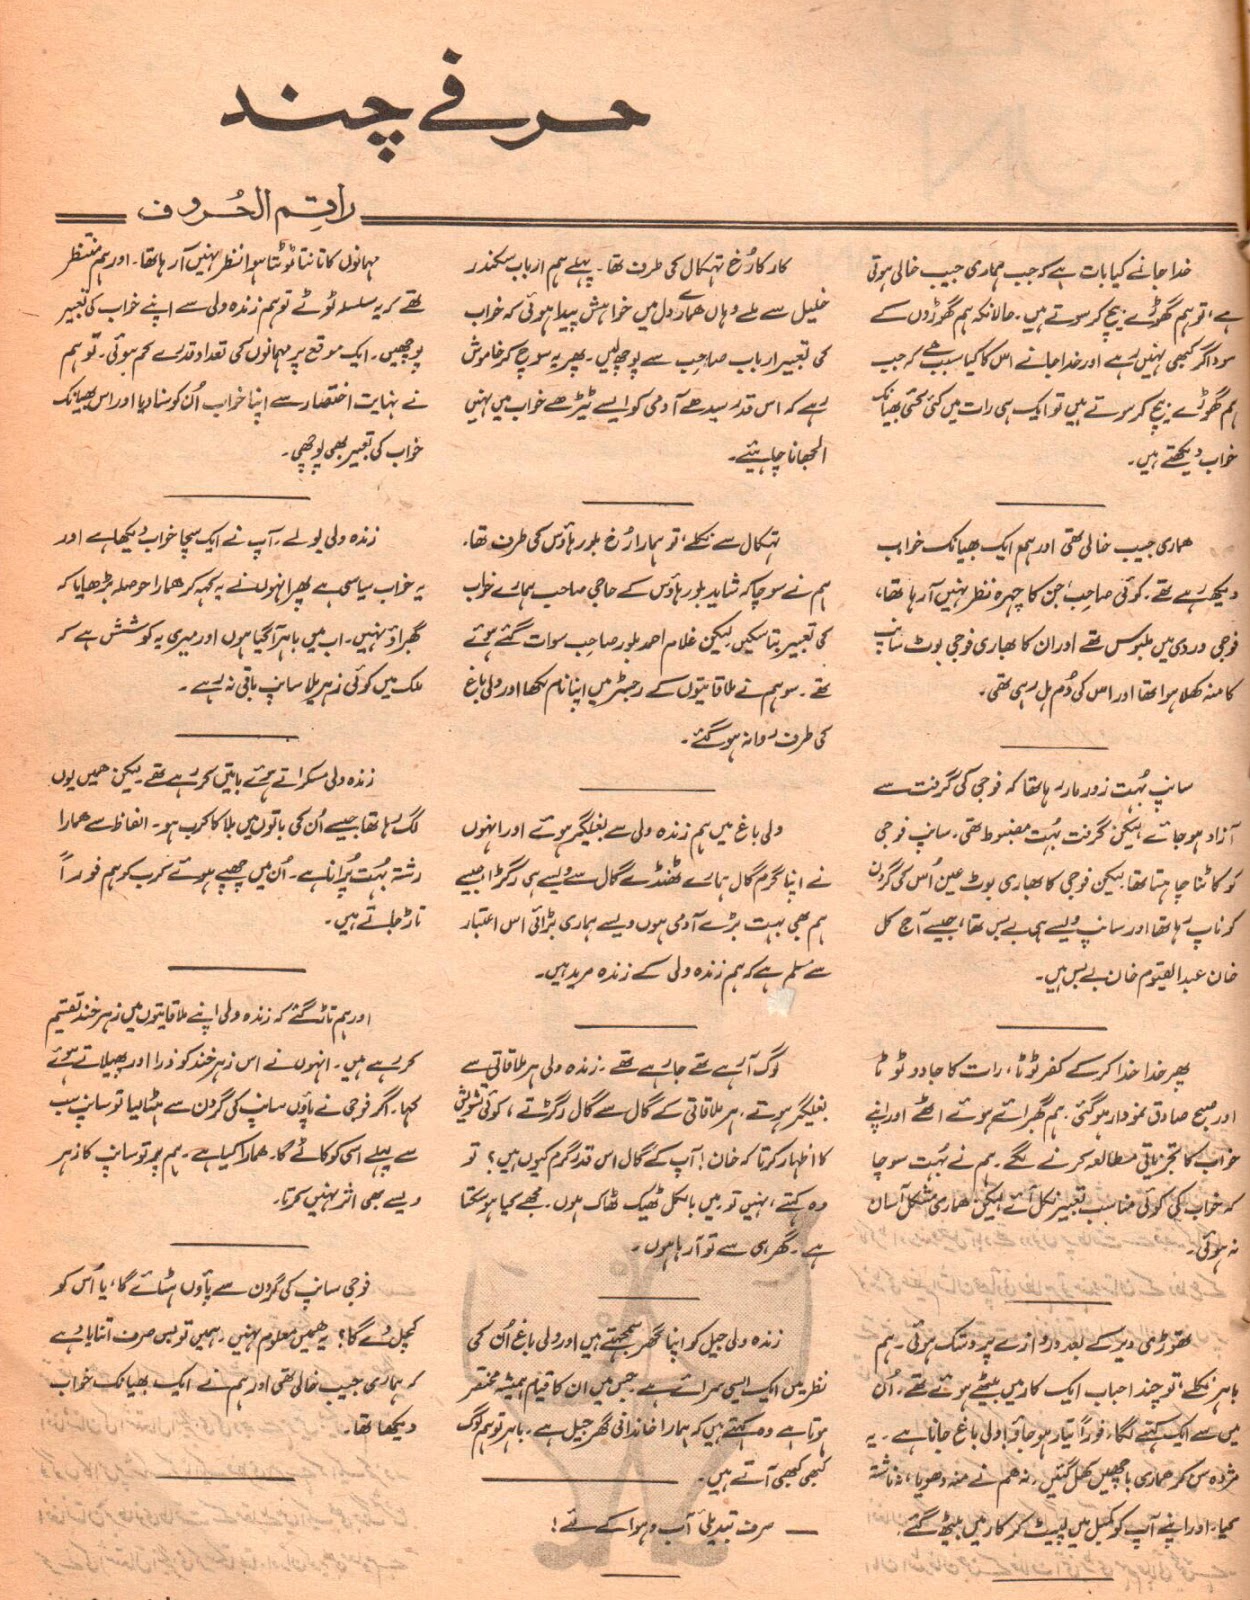 حرفے چند
راقم الحُروف
خدا جانے کیا بات ہے کہ جب ہماری جیب خالی ہوتی
ہے، تو ہم گھوڑے بیچ کر سوتے ہیں۔ حالانکہ ہم گھوڑوں کے
سوداگر کبھی نہیں رہے اور خدا جانے اس کا کیا سبب ہے کہ جب
ہم گھوڑے بیچ کر سوتے ہیں تو ایک ہی رات میں کئی کئی بھیانک
خواب دیکھتے ہیں۔
ہماری جیب خالی تھی اور ہم ایک بھیانک خواب
دیکھ رہے تھے۔ کوئی صاحب، جن کا چہرہ نظر نہیں آ رہا تھا،
فوجی وردی میں ملبوس تھے اور ان کا بھاری فوجی بوٹ سانپ
کا منہ کھلا ہوا تھا اور اس کی دُم ہل رہی تھی۔
سانپ بُہت زور مار رہا تھا کہ فوجی کی گرفت سے
آزاد ہو جائے لیکن گرفت بُہت مضبوط تھی۔ سانپ فوجی
کو کاٹنا چاہتا تھا لیکن فوجی کا بھاری بوٹ عین اُس کی گردن
کو ناپ رہا تھا اور سانپ ویسے ہی بے بس تھا، جیسے آج کل
خان عبدالقیوم خان بے بس ہیں۔
پھر خدا خدا کر کے کفر ٹوٹا، رات کا جادو ٹوٹا
اور صبح صادق نمودار ہو گئی۔ ہم گھبرائے ہوئے اٹھے اور اپنے
خواب کا تجزیاتی مطالعہ کرنے لگے۔ ہم نے بُہت سوچا
کہ خواب کی کوئی مناسب تعبیر نکل آئے لیکن ہماری مشکل آسان
نہ ہوئی۔
تھوڑی دیر کے بعد دروازے پر دستک ہوئی۔ ہم
باہر نکلے، تو چند احباب ایک کار میں بیٹھے ہوئے تھے۔ اُن
میں سے ایک کہنے لگا، فوراً تیار ہو جاؤ، ولی باغ جانا ہے۔ یہ
مژدہ سن کر ہماری باچھیں کھل گئیں۔ نہ ہم نے منہ دھویا، نہ ناشتہ
کیا۔ اور اپنے آپ کو کمبل میں لپیٹ کر کار میں بیٹھ گئے۔
کار کا رُخ تہکال کی طرف تھا۔ پہلے ہم ارباب سکندر
خلیل سے ملے وہاں ہمارے دل میں خواہش پیدا ہوئی کہ خواب
کی تعبیر ارباب صاحب سے پوچھ لیں۔ پھر یہ سوچ کر خاموش
رہے کہ اس قدر سیدھے آدمی کو ایسے ٹیڑھے خواب میں نہیں
الجھانا چاہیئے۔
تہکال سے نکلے، تو ہمارا رُخ بلور ہاؤس کی طرف تھا۔
ہم نے سوچا کہ شاید بلور ہاؤس کے حاجی صاحب ہمارے خواب
کی تعبیر بتا سکیں لیکن غلام احمد بلور صاحب سوات گئے ہوئے
تھے۔ سو ہم نے ملاقاتیوں کے رجسٹر میں اپنا نام لکھا اور ولی باغ
کی طرف روانہ ہو گئے۔
ولی باغ میں ہم زندہ ولی سے بغلگیر ہوئے اور انہوں
نے اپنا گرم گال ہمارے ٹھنڈے گال سے ویسے ہی رگڑا جیسے
ہم بھی بہت بڑے آدمی ہوں ویسے ہماری بڑائی اس اعتبار
سے مسلم ہے کہ ہم زندہ ولی کے زندہ مرید ہیں۔
لوگ آ رہے تھے جا رہے تھے۔ زندہ ولی ہر ملاقاتی سے
بغلگیر ہوتے، ہر ملاقاتی کے گال سے گال رگڑتے، کوئی تشویش
کا اظہار کرتا کہ خان! آپ کے گال اس قدر گرم کیوں ہیں؟ تو
وہ کہتے، نہیں تو۔ میں بالکل ٹھیک ٹھاک ہوں۔ مجھے کیا ہو سکتا
ہے۔ گھر ہی سے تو آ رہا ہوں۔
زندہ ولی جیل کو اپنا گھر سمجھتے ہیں اور ولی باغ اُن کی
نظر میں ایک ایسی سرائے ہے۔ جس میں ان کا قیام ہمیشہ مختصر
ہوتا ہے وہ کہتے ہیں کہ ہمارا خاندانی گھر جیل ہے۔ باہر تو ہم لوگ
کبھی کبھی آتے ہیں۔
— صرف تبدیلئ آب و ہوا کے لئے!
مہمانوں کا تانتا ٹوٹتا ہوا نظر نہیں آ رہا تھا۔ اور ہم منتظر
تھے کہ یہ سلسلہ ٹوٹے تو ہم زندہ ولی سے اپنے خواب کی تعبیر
پوچھیں۔ ایک موقع پر مہمانوں کی تعداد قدرے کم ہوئی۔ تو ہم
نے نہایت اختصار سے اپنا خواب اُن کو سنا دیا اور اس بھیانک
خواب کی تعبیر بھی پوچھی۔
زندہ ولی بولے۔ آپ نے ایک سچا خواب دیکھا ہے اور
یہ خواب سیاسی ہے پھر انہوں نے یہ کہہ کر ہمارا حوصلہ بڑھایا کہ
گھبراؤ نہیں۔ اب میں باہر آ گیا ہوں اور میری یہ کوشش ہے کہ
ملک میں کوئی زہریلا سانپ باقی نہ رہے۔
زندہ ولی مسکراتے ہوئے باتیں کر رہے تھے لیکن ہمیں یوں
لگ رہا تھا جیسے اُن کی باتوں میں بلا کا کرب ہو۔ الفاظ سے ہمارا
رشتہ بُہت پُرانا ہے۔ اُن میں چھپے ہوئے کرب کو ہم فوراً
تاڑ جاتے ہیں۔
اور ہم تاڑ گئے کہ زندہ ولی اپنے ملاقاتیوں میں زہر خند تقسیم
کر رہے ہیں۔ انہوں نے اس زہر خند کو ذرا اور پھیلاتے ہوئے
کہا۔ اگر فوجی نے پاؤں سانپ کی گردن سے ہٹا لیا تو سانپ سب
سے پہلے اسی کو کاٹے گا۔ ہمارا کیا ہے۔ ہم پر تو سانپ کا زہر
ویسے بھی اثر نہیں کرتا۔
فوجی سانپ کی گردن سے پاؤں ہٹائے گا، یا اُس کو
کچل دے گا؟ یہ ہمیں معلوم نہیں۔ ہمیں تو بس صرف اتنا یاد ہے
کہ ہماری جیب خالی تھی اور ہم نے ایک بھیانک خواب
دیکھا تھا۔